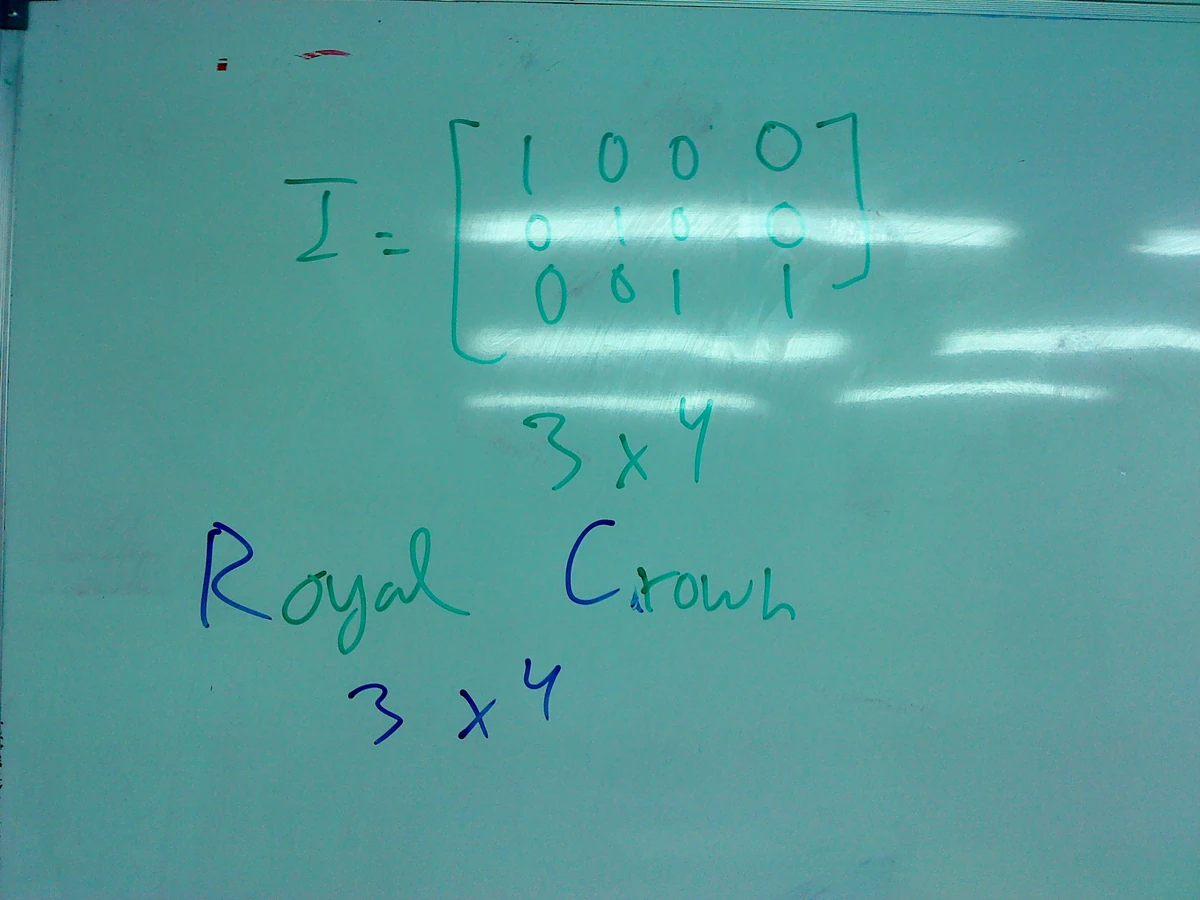 I = [ 1 0 0 0
0 1 0 0
0 0 1 1 ]
3 x 4
Royal Crown
3 x 4